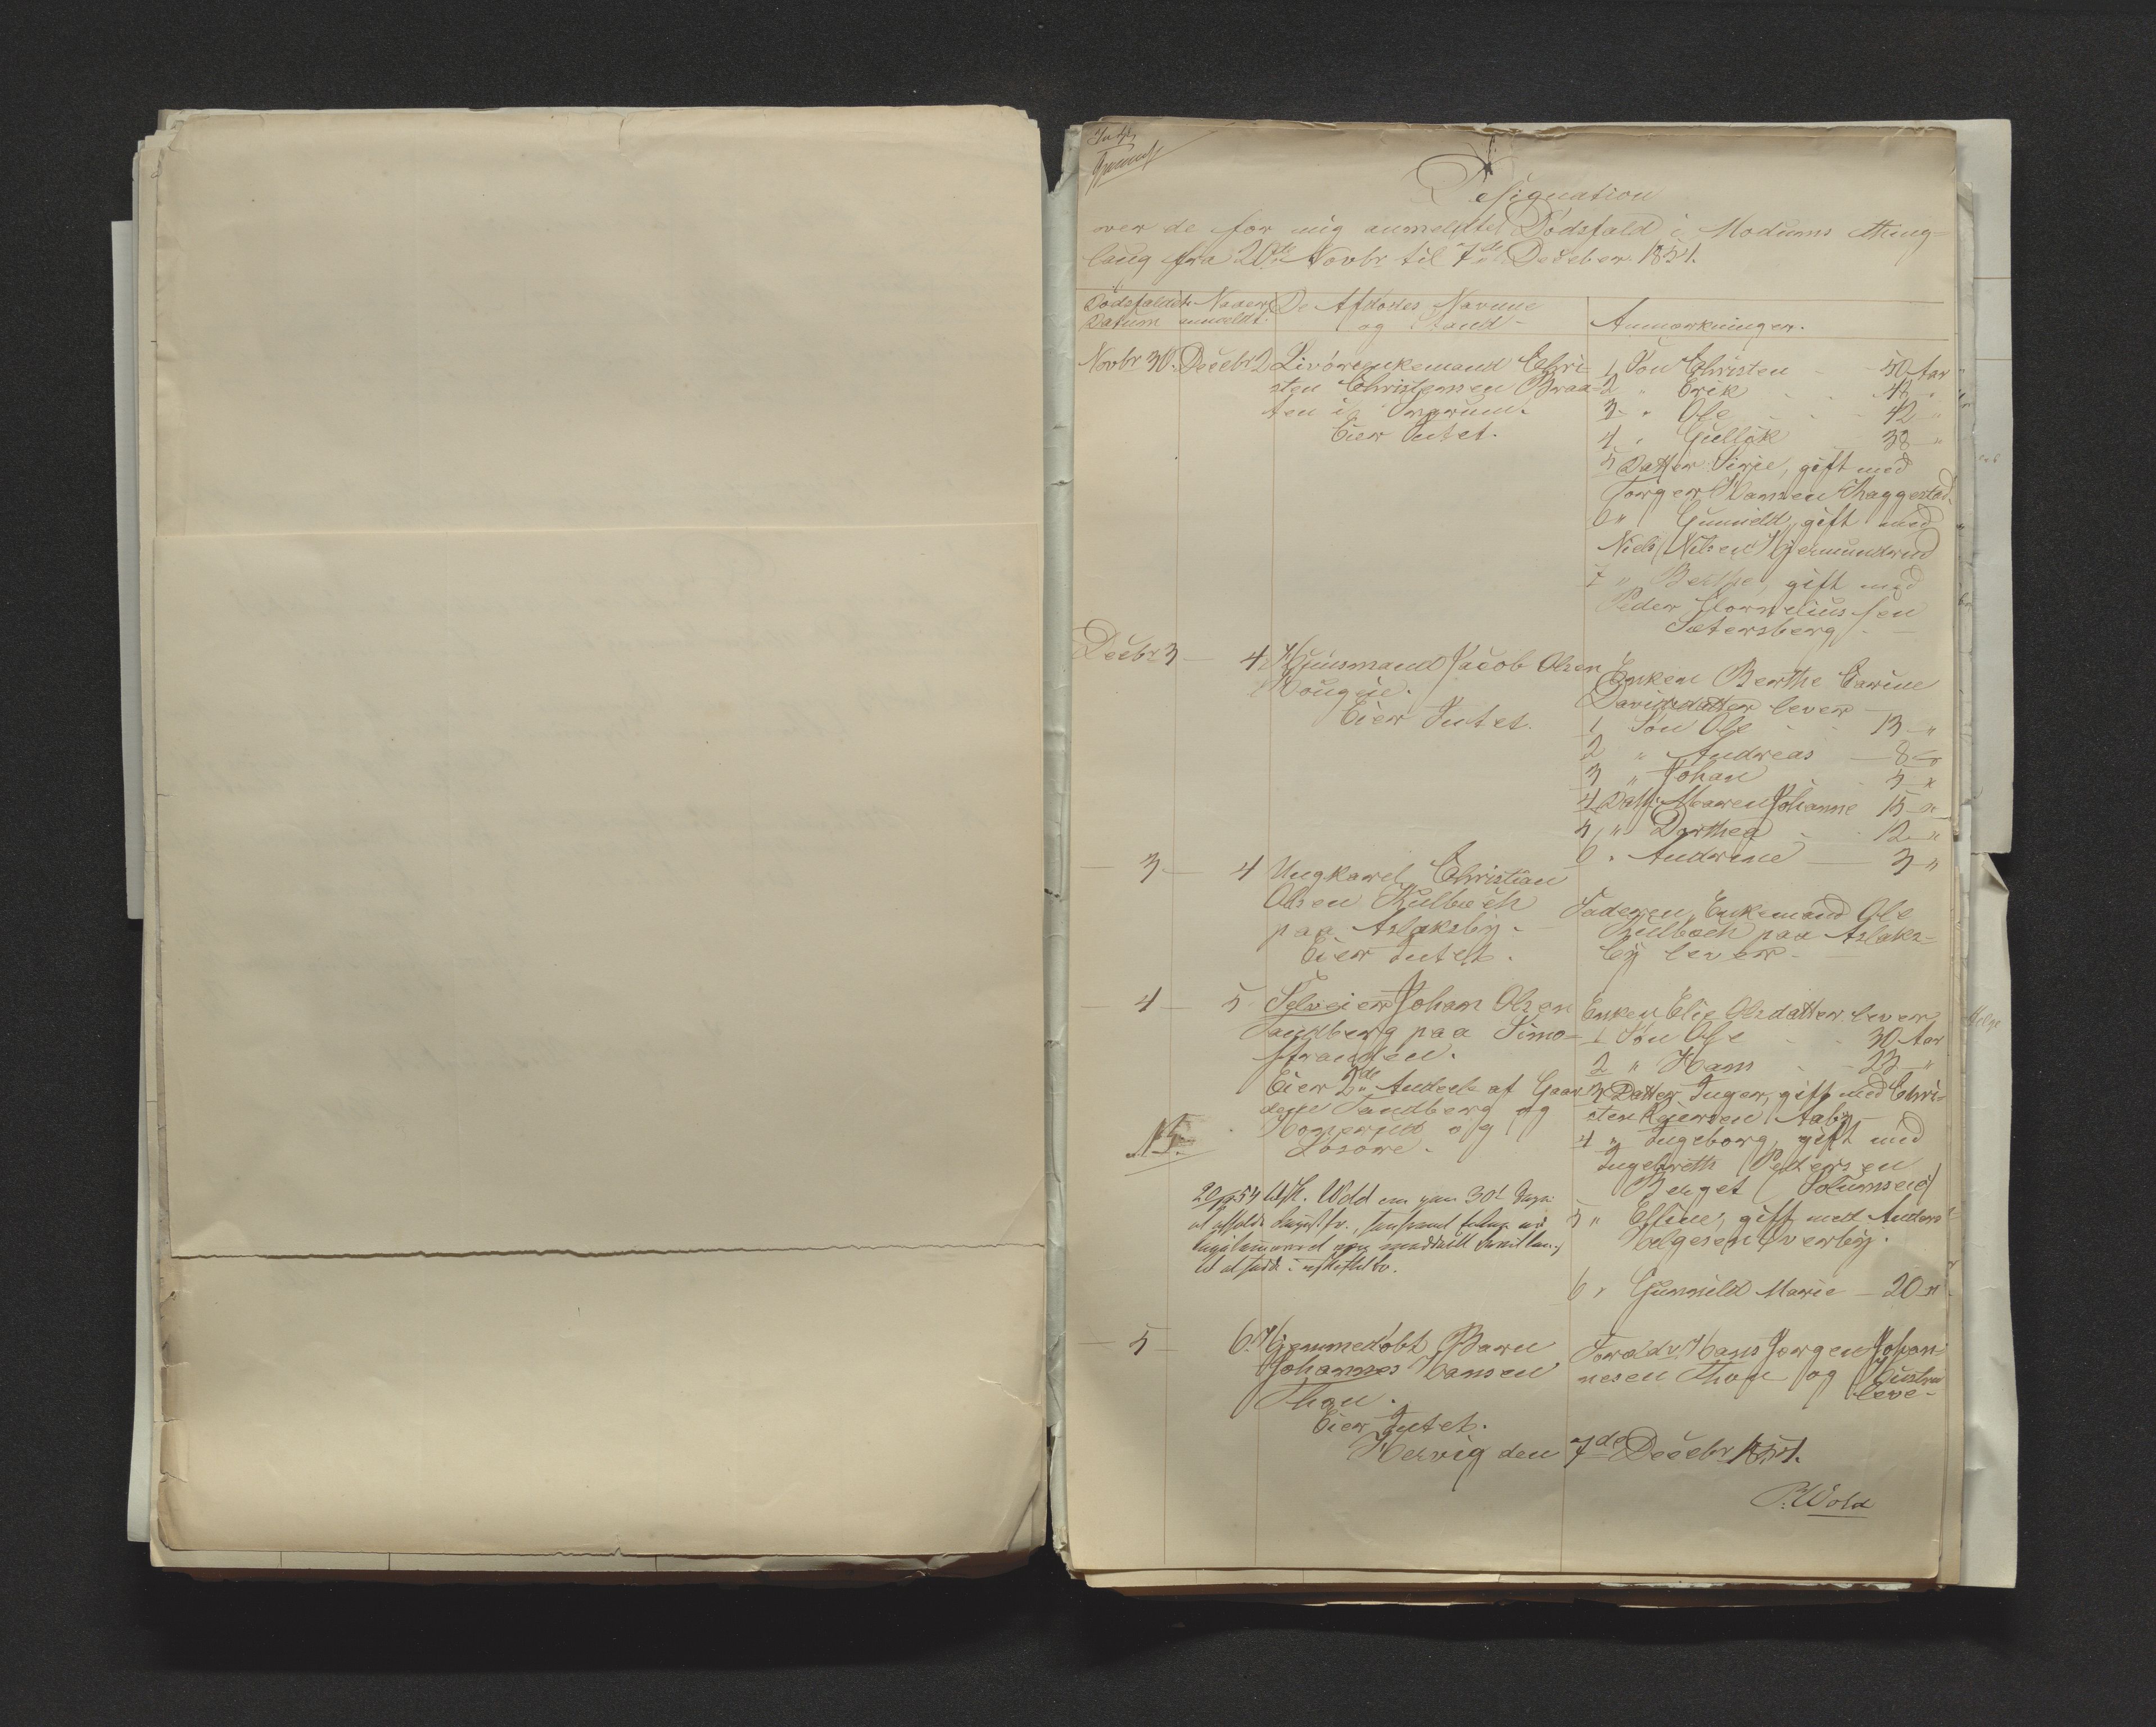 Designation
over de for mig anmeldte Dødsfald i Modums Thing-
laug fra 20de Novbr til 7de Decbr 1854.
Dødsfaldets Datum
Naar anmeldt.
De Afdødes Navne
og Stand
Anmærkninger.
Novbr 30. Decbr 2 Livørenkemand Chri-
sten Christensen Braa-
ten i
Eier Intet.
1 Søn Christen 50 Aar
2 " Erik 48 "
3 " Ole 42 "
4 " Gulløk 38 "
5 Datter Sirie, gift med
Torger Hansen Thaggestad.
6 " Gunnild gift med
Niels Nilsen Gjermundrud
7 " Berthe, gift med
Peder Corneliussen
Sætersberg. -
Decbr 3 - 4 Huusmand Jacob Olsen
Hougue.
Eier Intet.
Enken Berthe Carine
Davidsdatter lever
1 Søn Ole 13 "
2 " Andreas 8 "
3 " Johan 5 "
4 Datt: Maren Johanne 15 "
5 " Dorthea 12 "
6 " Andrine 3 "
- 3 - 4 Ungkarel Christian
Olsen Kulbech
paa Aslaksby.
Eier Intet.
Faderen, Enkemand Ole
Kulbech paa Aslaks-
by lever -
- 4 - 5 Selveier Johan Olsen
Sandberg paa Simo-
stranden.
Eier 2de Andele af Gaar-
dene Sandberg og
og
Løsøre.
Enken Elie Olsdatter lever
1 Søn Ole 30 Aar
2 " Hans 23 "
3 Datter Inger, gift med Chri-
sten Aaby
4 " Ingeborg, gift med
Ingebreth Pedersen
Berget Solumseid
5 " Elline, gift med Anders
Helgesen Øverby.
6 " Gunnild Marie - 20 "
- 5 - 6 Hjemmedøbt Barn
Johannes Hansen
Thon.
Eier Intet.
Foræld: Hans Jørgen Johan-
nesen Thon og Hustru
leve -
Hervig den 7de Decbr 1854.
P. Wold